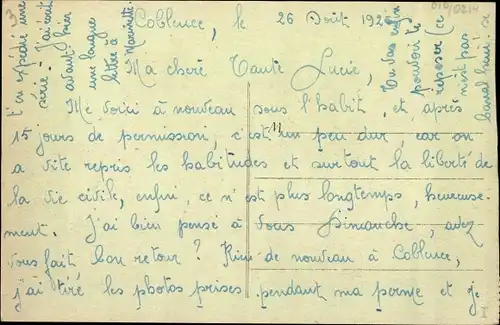 Coblence, le 26 Août 192
Ma chere Tante Lucie,
Me voici à nouveau sous l'habit, et après
15 jours de permission, c'est un peu dur, car on
a vite repris les habitudes et surtout la liberté de
la vie civile, enfin, ce n'est plus longtemps, heureuse-
ment. J'ai bien pensé à vous Dimanche, avez
vous fait bon retour? Rien de nouveau à Coblence,
j'ai tiré les photos prises pendant ma perme et je
t'en expédie une
série. J'ai écrit
avant hier
une longue
lettre à
Tu vas enfin
pouvoir te
reposer (ce
n'est pas
3
I